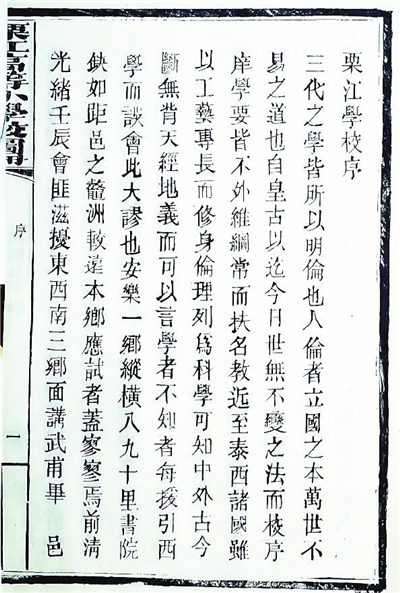 栗江學校序
三代之學皆所以明倫也人倫者立國之本萬世不
易之道也自皇古以迄今日世無不變之法而校序
庠學要皆不外維綱常而扶名教近至泰西諸國雖
以工藝專長而修身倫理列爲科學可知中外古今
斷無背天經地義而可以言學者不知者每援引西
學而談會此大謬也安樂一鄉縱橫八九十里書院
缺如距邑之鼇洲較遠本鄉應試者蓋寥寥焉前清
光緒壬辰會匪滋擾東西南三鄉面講武甫畢 邑
栗江高等小學校圖冊
序
一